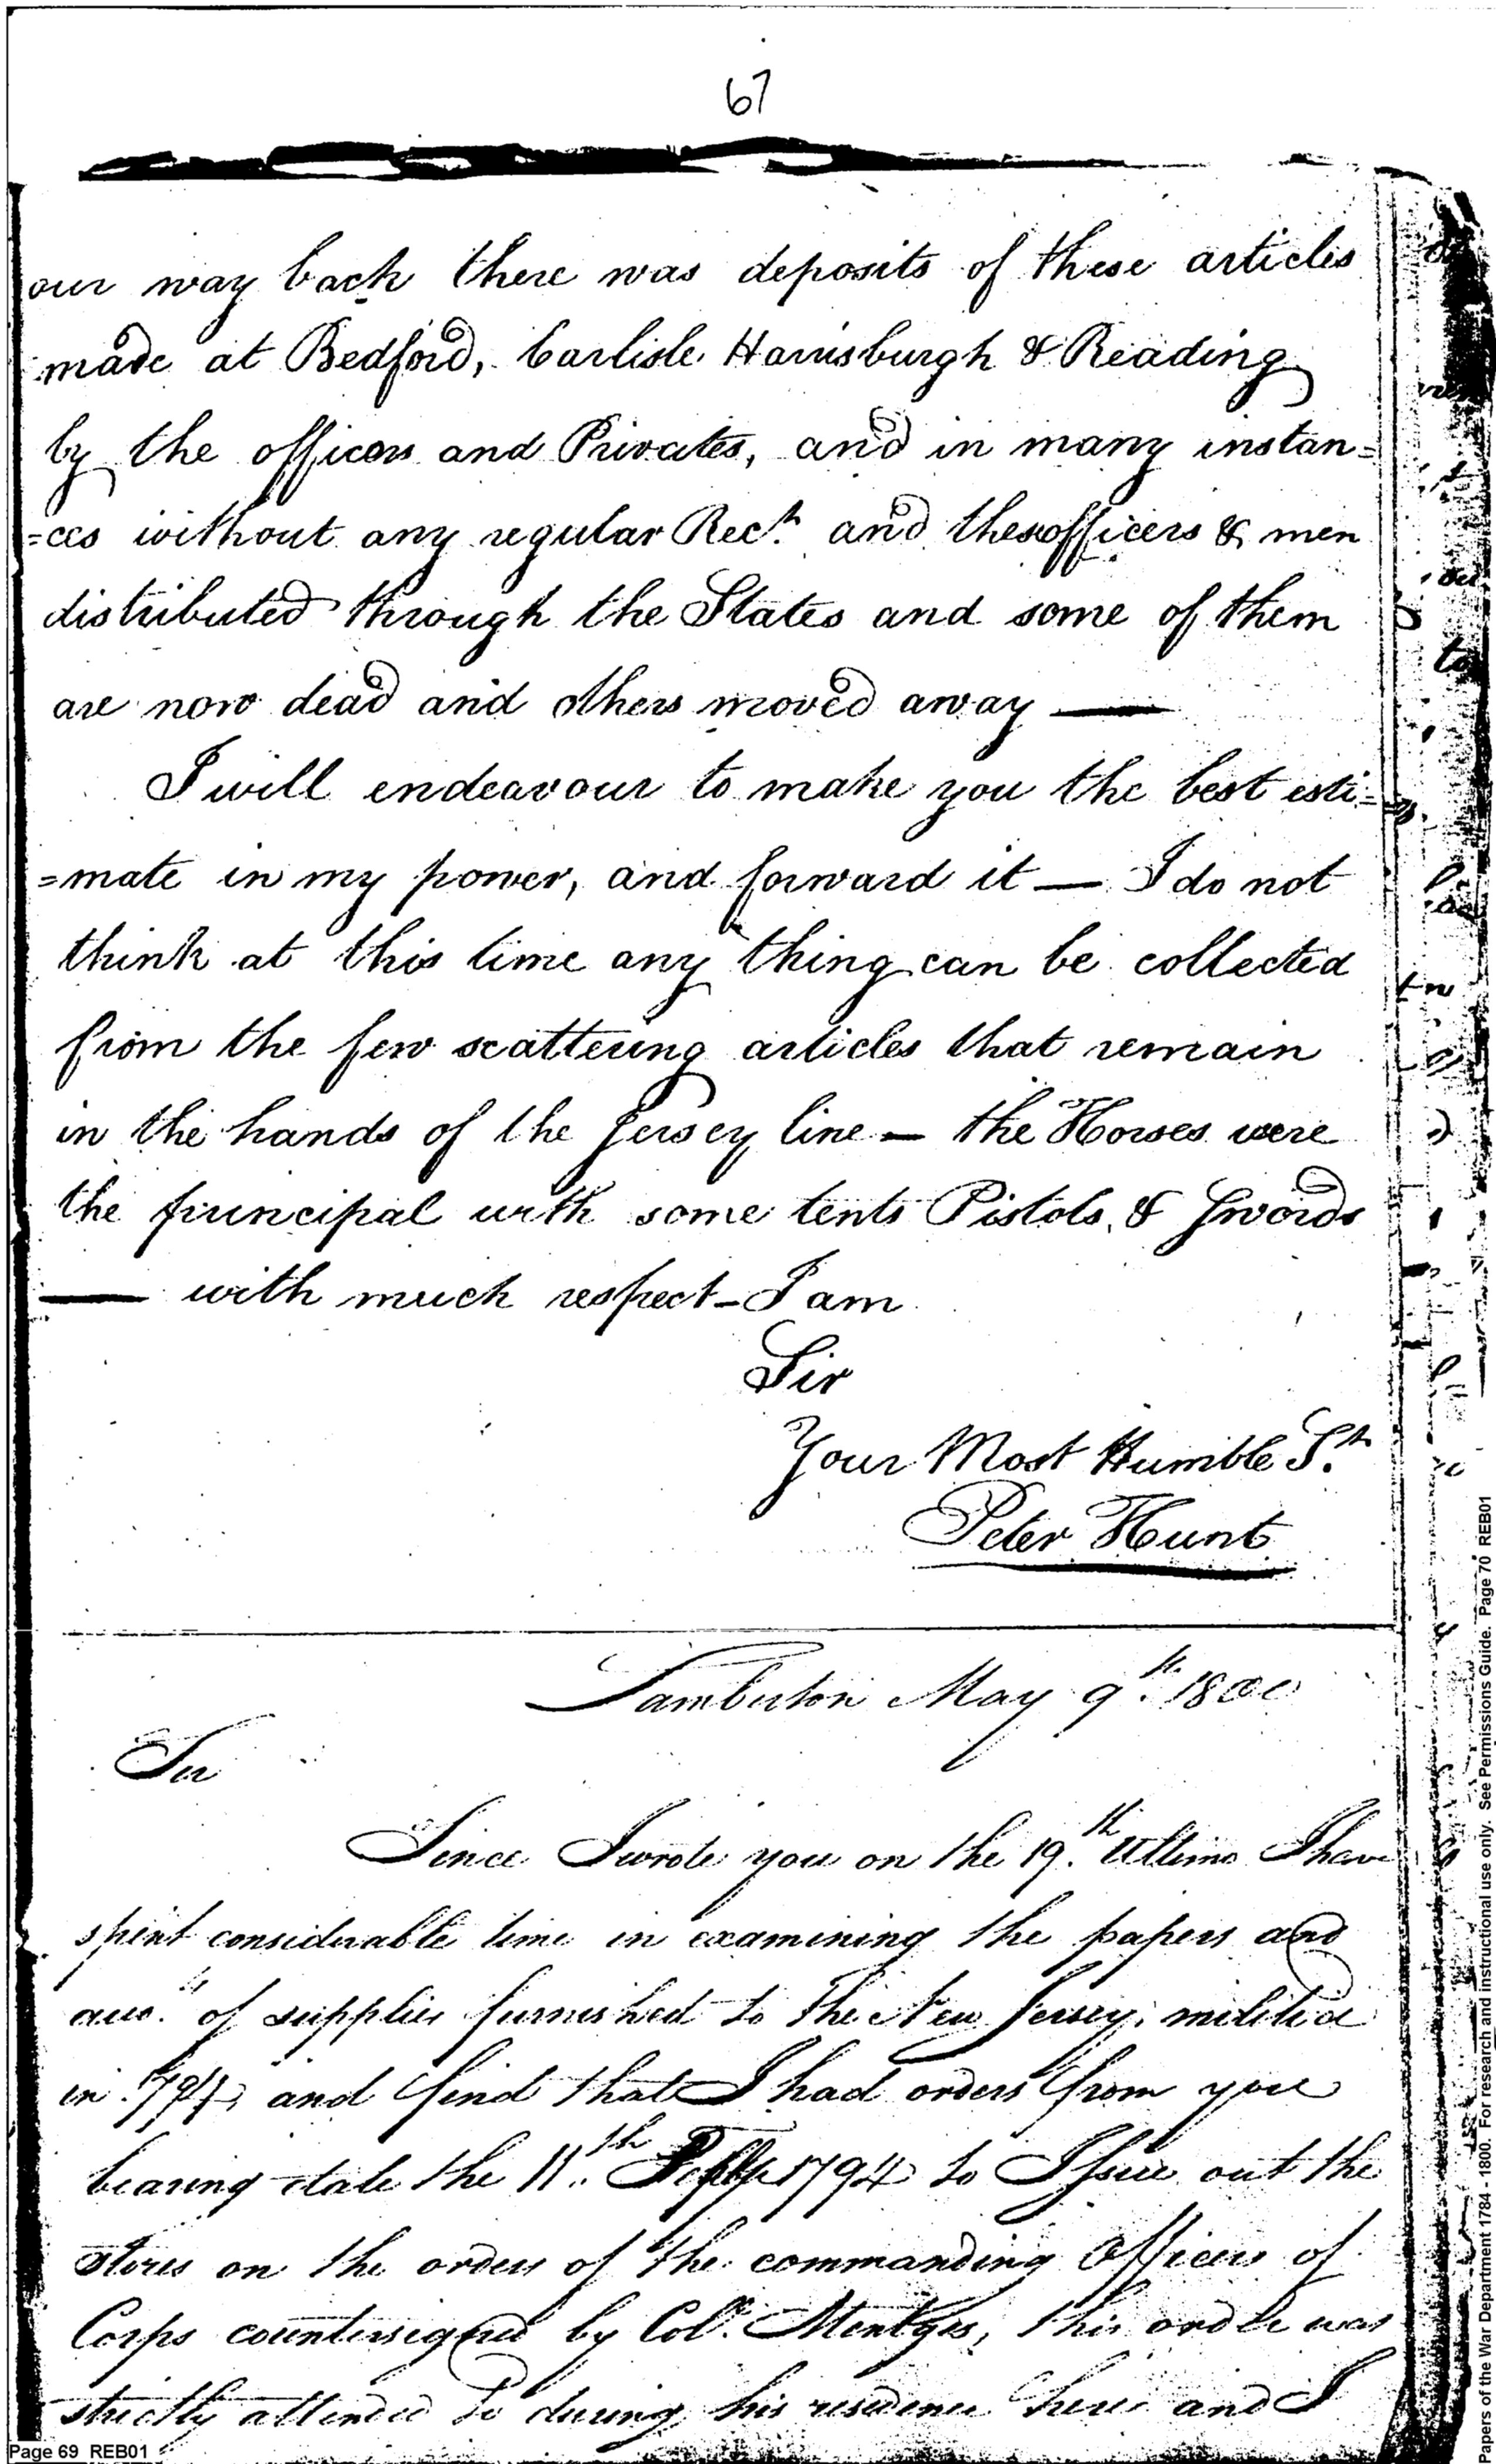 67
our way back there was deposits of these articles
made at Bedford, Carlisle Harrisburgh & Reading
by the officers and Privates, and in many instan=
=ces without any regular Rect. and these officers & men
distributed through the States and some of them
are now dead and others moved away —
I will endeavour to make you the best esti=
=mate in my power, and forward it — I do not
think at this time any thing can be collected
from the few scattering articles that remain
in the hands of the Jersey line — the Horses were
the principal with some tents Pistols, & Swords
— with much respect - I am
Sir
Your Most Humble St.
Peter Hunt
Lamberton May 9th. 1800
Sir
Since I wrote you on the 19th. Ultimo I have
spent considerable time in examining the papers and
of supplies furnished to the New Jersey militia
in 1794, and find that I had orders from you
bearing date the 11th. Sept 1794 to Issue out the
stores on the orders of the commanding Officers of
Corps countersigned by Col. Mentges, this order was
strictly attended to during his residence here and I
Page 69 REB01
Papers of the War Department 1784 - 1800. For research and instructional use only. See Permissions Guide. Page 70 REB01